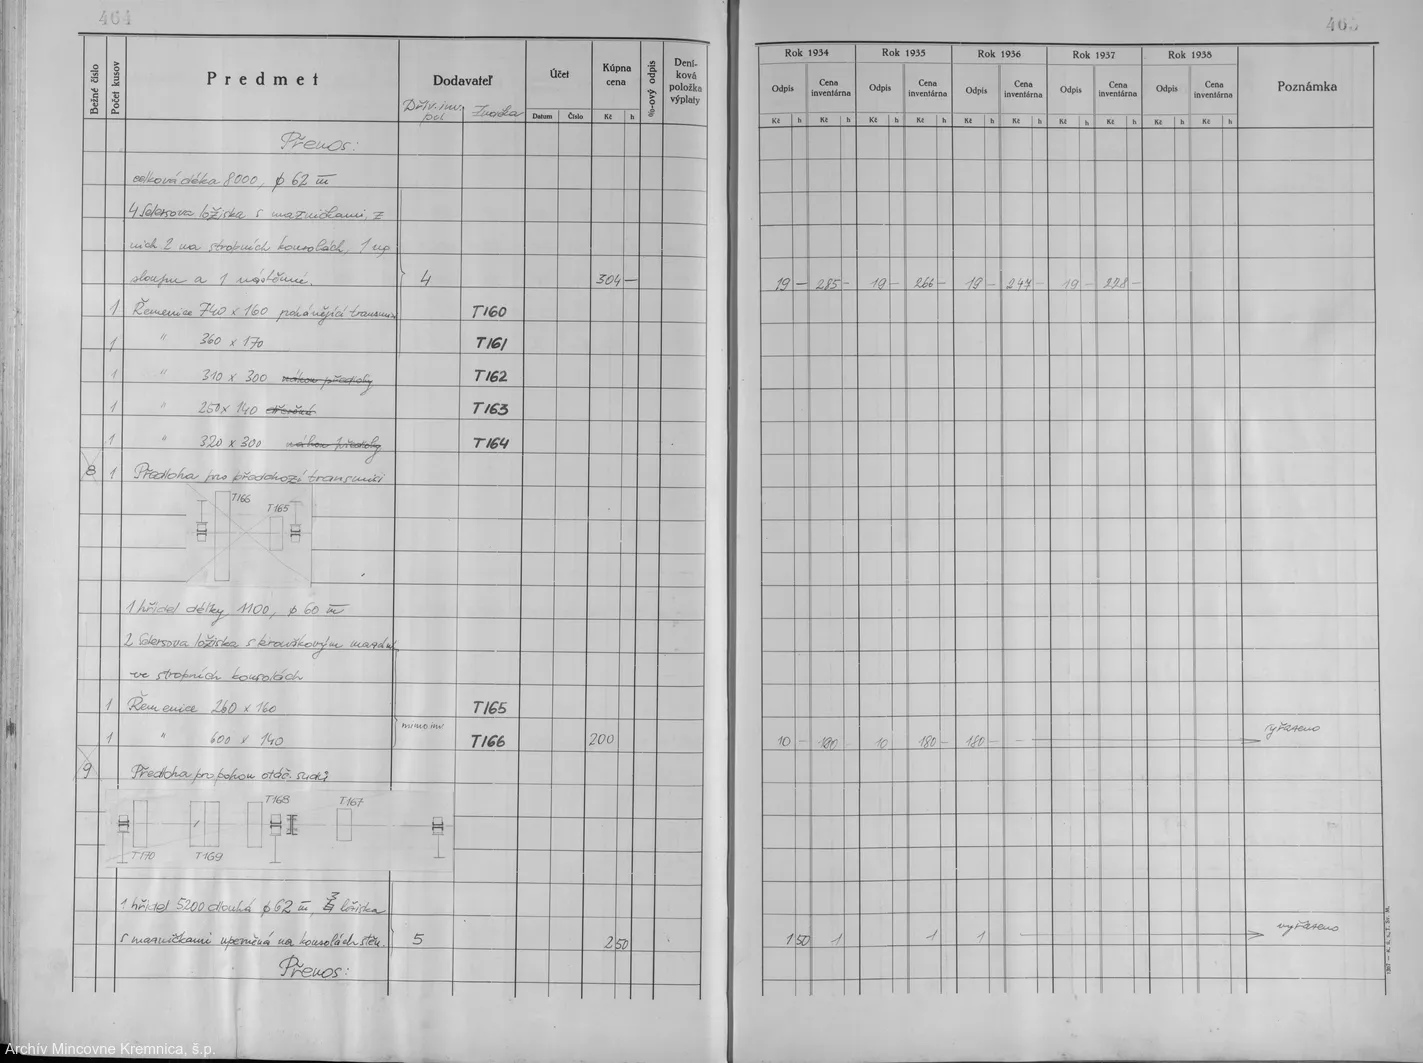 464
Bežné číslo
Počet kusov
Predmet
Dodavateľ
Účet
Datum
Číslo
Kúpna cena
Kč h
%-ový odpis
Deníková položka výplaty
Přenos:
celková délka 8000, φ 62 m̅
4 Selersova ložiska s mazničkami, z
nich 2 na stropních konsolách, 1 na
sloupu a 1 nástěnné. 4 304 —
1 Řemenice 740 x 160 pohánějící transmisi T160
1 " 360 x 170 T161
1 " 310 x 300 T162
1 " 250 x 140 T163
1 " 320 x 300 T164
8 1 Předloha pro předchozí transmisi
T166
T165
1 hřídel délky 1100, φ 60 m̅
2 Selersova ložiska s kroužkovým mazán.
ve stropních konsolách
1 Řemenice 260 x 160 T165
mimo inv.
1 " 600 x 140 T166 200
9 Předloha pro pohon otáč. sudů
T168 T167
T170 T169
1 hřídel 5200 dlouhá φ 62 m̅, 3 ložiska
s mazničkami upevněná na konsolách stěn. 5 2 50
Přenos:
465
Rok 1934 Rok 1935 Rok 1936 Rok 1937 Rok 1938
Odpis Cena inventárna Odpis Cena inventárna Odpis Cena inventárna Odpis Cena inventárna Odpis Cena inventárna
Poznámka
Kč h Kč h Kč h Kč h Kč h Kč h Kč h Kč h Kč h Kč h
19 — 285 — 19 — 266 — 19 — 247 — 19 — 228 —
10 — 190 — 10 180 — 180 — — vyřazeno
1 50 1 1 1 — vyřazeno
Archív Mincovne Kremnica, š.p.